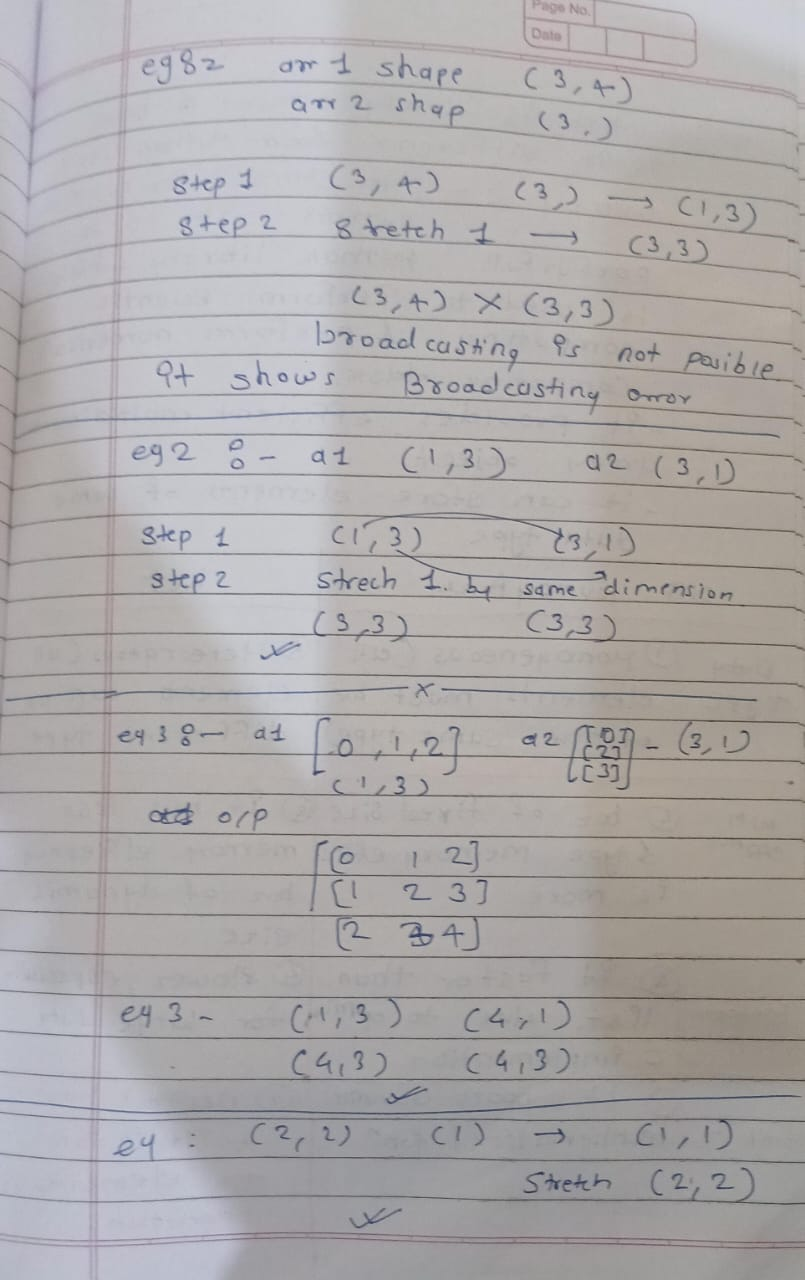 Page No.
Date
eg 82 arr 1 shape (3,4)
arr 2 shap (3,)
Step 1 (3,4) (3,) → (1,3)
Step 2 Stretch 1 → (3,3)
(3,4) × (3,3)
broadcasting is not posible
it shows Broadcasting error
eg 2 :- a1 (1,3) a2 (3,1)
Step 1 (1,3) (3,1)
Step 2 Strech 1. by same dimension
(3,3) (3,3)
✓
x
eg 3 :- a1 [0,1,2] a2 [[0] - (3,1)
[2]
(1,3) [3]]
o/p
[[0 1 2]
[1 2 3]
[2 3 4]
eg 3 - (1,3) (4,1)
(4,3) (4,3)
✓
eg : (2,2) (1) → (1,1)
Stretch (2,2)
✓